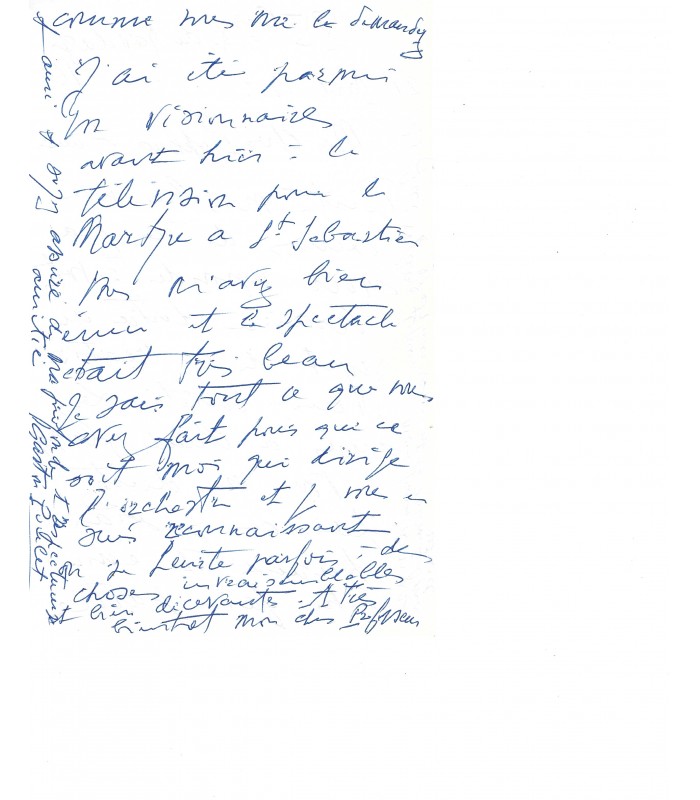 comme vous me le demandez
J'ai été parmi
les visionnaires
avant hier à la
télévision pour le
Martyre de St Sebastien
vous m'avez bien
ému et le spectacle
était très beau
Je sais tout ce que vous
avez fait pour que ce
soit moi qui dirige
l'orchestre et je vous en
suis reconnaissant
On se heurte parfois à des
choses invraisemblables
et bien décevantes. A très
bientôt mon cher Professeur
et soyez assuré de ma profonde et respectueuse
amitié
Gaston Poulet